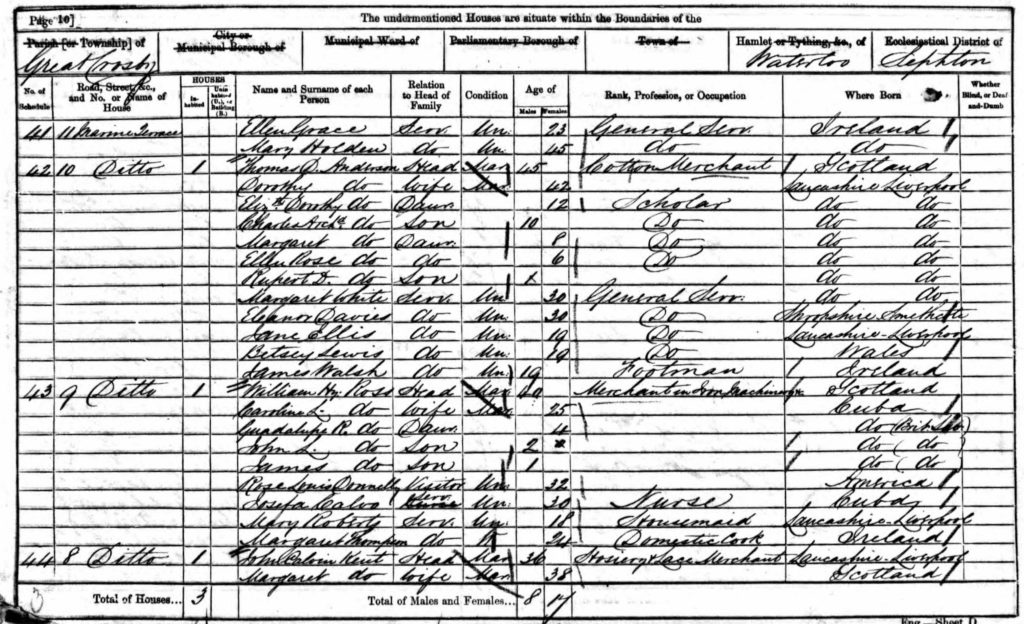 Page 10]
The undermentioned Houses are situate within the Boundaries of the
Parish [or Township] of
City or Municipal Borough of
Municipal Ward of
Parliamentary Borough of
Town of
Hamlet or Tything, &c., of
Ecclesiastical District of
Great Crosby
Waterloo
Sephton
No. of Schedule
Road, Street, &c., and No. or Name of House
HOUSES
Inhabited
Uninhabited (U.), or Building (B.)
Name and Surname of each Person
Relation to Head of Family
Condition
Age of
Males
Females
Rank, Profession, or Occupation
Where Born
Whether Blind, or Deaf-and-Dumb
41 11 Marine Terrace Ellen Grace Serv. Un. 23 General Serv. Ireland
Mary Holden do Un. 45 do do
42 10 Ditto 1 Thomas D. Anderson Head Mar 45 Cotton Merchant Scotland
Dorothy do Wife Mar 42 Lancashire Liverpool
Eliz.th Dorothy do Daur. 12 Scholar do do
Charles Arch.d do Son 10 Do do do
Margaret do Daur. 8 Do do do
Ellen Rose do do 6 Do do do
Rupert D. do Son do do
Margaret White Serv. Un. 30 General Serv. do do
Eleanor Davies do Un. 30 Do Shropshire
Jane Ellis do Un. 19 Do Lancashire Liverpool
Betsey Lewis do Un. 19 Do Wales
James Walsh do Un. 19 Footman Ireland
43 9 Ditto 1 William Hy. Ross Head Mar 40 Merchant in Iron Machinery Scotland
Caroline L. do Wife Mar 25 Cuba
Guadalupe R. do Daur. 4 do (Brit. Sub)
John L. do Son 2 do (do
James do Son 1 do (do
Rose Connelly Visitor Un. 32 America
Josefa Calvo Serv. Un. 30 Nurse Cuba
Mary Roberts Serv. Un. 18 Housemaid Lancashire Liverpool
Margaret Thompson do 24 Domestic Cook Ireland
44 8 Ditto 1 John Calvin Kent Head Mar. 36 Hosiery & Lace Merchant Lancashire Liverpool
Margaret do Wife Mar. 38 Scotland
Total of Houses... 3
Total of Males and Females... 8 17
Eng.—Sheet D.